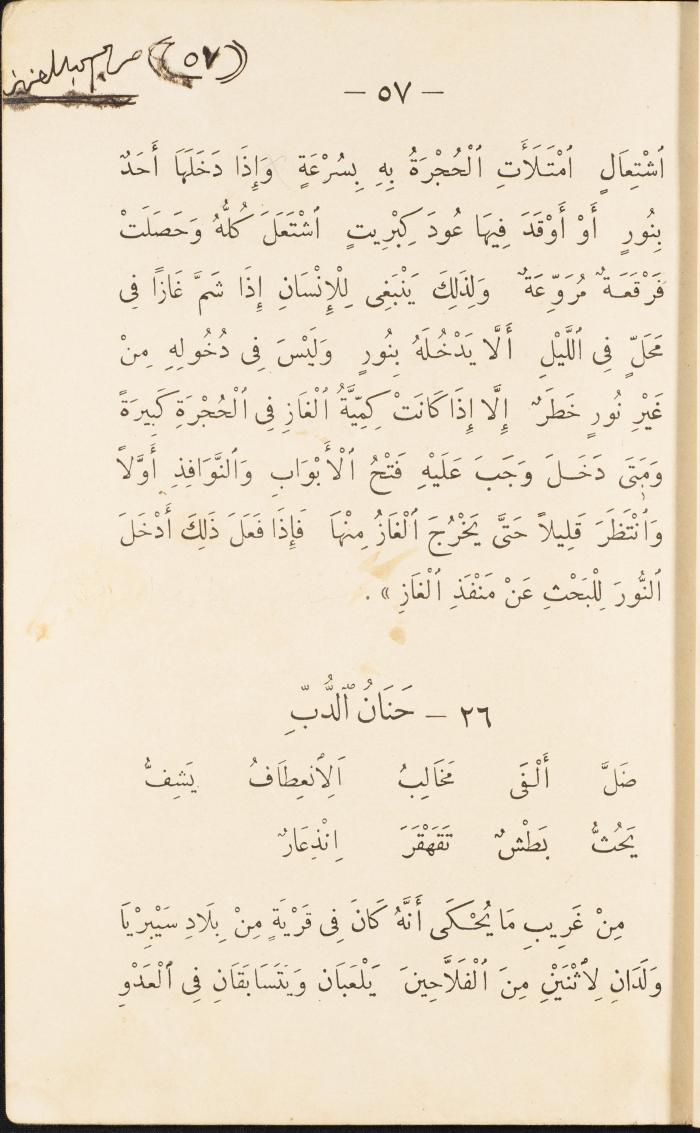 (٥٧)
— ٥٧ —
ٱشْتِعَالٍ ٱمْتَلَأَتِ ٱلْحُجْرَةُ بِهِ بِسُرْعَةٍ وَإِذَا دَخَلَهَا أَحَدٌ
بِنُورٍ أَوْ أَوْقَدَ فِيهَا عُودَ كِبْرِيتٍ ٱشْتَعَلَ كُلُّهُ وَحَصَلَتْ
فَرْقَعَةٌ مُرَوِّعَةٌ وَلِذَلِكَ يَنْبَغِى لِلْإِنْسَانِ إِذَا شَمَّ غَازًا فِى
مَحَلٍّ فِى ٱللَّيْلِ أَلَّا يَدْخُلَهُ بِنُورٍ وَلَيْسَ فِى دُخُولِهِ مِنْ
غَيْرِ نُورٍ خَطَرٌ إِلَّا إِذَا كَانَتْ كِمِّيَّةُ ٱلْغَازِ فِى ٱلْحُجْرَةِ كَبِيرَةً
وَمَتَى دَخَلَ وَجَبَ عَلَيْهِ فَتْحُ ٱلْأَبْوَابِ وَٱلنَّوَافِذِ أَوَّلاً
وَٱنْتَظَرَ قَلِيلاً حَتَّى يَخْرُجَ ٱلْغَازُ مِنْهَا فَإِذَا فَعَلَ ذَلِكَ أَدْخَلَ
ٱلنُّورَ لِلْبَحْثِ عَنْ مَنْفَذِ ٱلْغَازِ » .
٢٦ — حَنَانُ ٱلدُّبِّ
ضَلَّ أَلْقَى مَخَالِبُ اَلِٱنْعِطَافُ يَشِفُّ
يَحُثُّ بَطْشٌ تَقَهْقَرَ اِنْذِعَارٌ
مِنْ غَرِيبِ مَا يُحْكَى أَنَّهُ كَانَ فِى قَرْيَةٍ مِنْ بِلَادِ سَيْبِرْيَا
وَلَدَانِ لِٱثْنَيْنِ مِنَ ٱلْفَلَّاحِينَ يَلْعَبَانِ وَيَتَسَابَقَانِ فِى ٱلْعَدْوِ